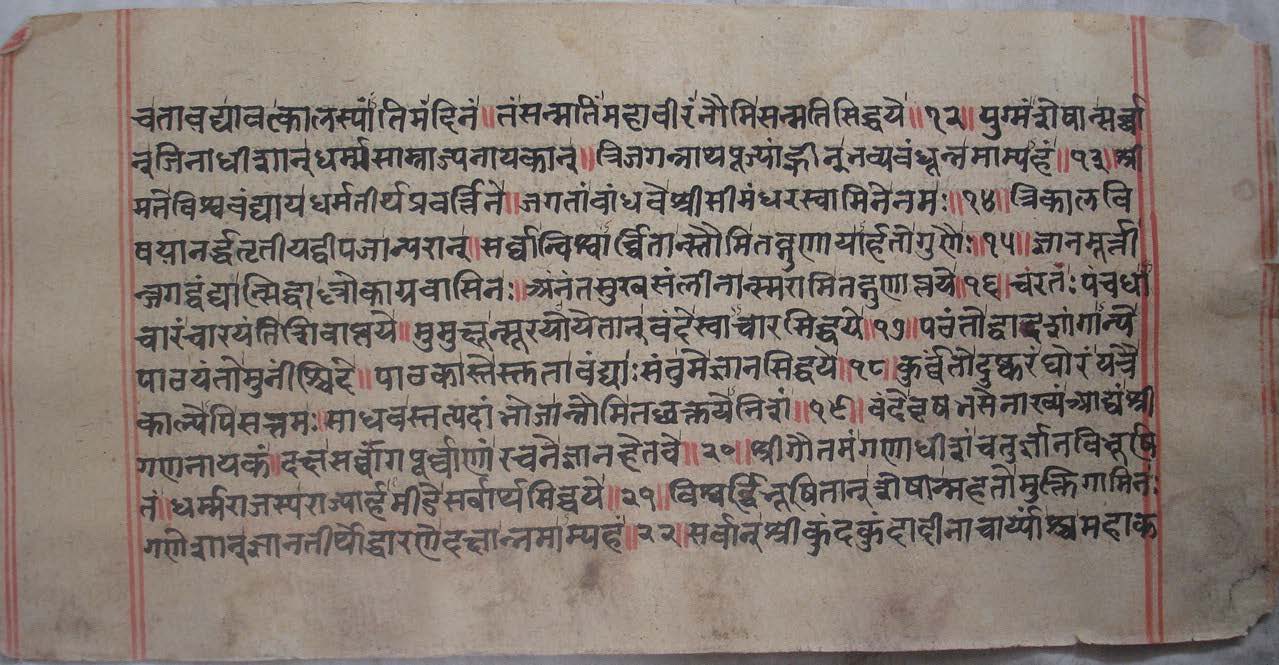 चतावद्यावत्कालस्पांतिमंदिनं॥तंसन्मतिंमहावीरंनौमिसन्मतिसिद्धये॥१२॥युग्मंशेषान्सर्व्वा
न्जिनाधीशान्धर्म्मसाम्राज्यनायकान्॥त्रिजगन्नाथपूज्यांघ्रीन्नव्यबंधून्नमाम्यहं॥१३॥श्री
मतेविश्ववंद्यायधर्मतीर्थप्रवर्त्तिने॥जगतांबांधवेश्रीसीमंधरस्वामिनेनमः॥१४॥त्रिकालवि
षयानर्द्धतृतीयद्वीपजान्परान्॥सर्व्वान्विश्वार्च्चितान्स्तौमितद्गुणायार्हतोगुणैः॥१५॥ज्ञानमूर्त्ती
न्जगद्वंद्यान्सिद्धाॅंल्लोकाग्रवासिनः॥अनंतसुखसंलीनान्स्मरामितद्गुणाप्तये॥१६॥चरतः पंचधा
चारंचारयंतिशिवाप्तये॥मुमुक्षून्सूरयोयेतान्वंदेस्वाचारसिद्धये॥१७॥पठंतोद्वादशांगान्ये
पाठयंतोमुनींश्चिदे॥पाठकास्तेस्तुतावंद्याःसंतुमेज्ञानसिद्धये॥१८॥कुर्व्वंतोदुष्करंघोरंयेत्रै
काल्येपिसत्तमः॥साधवस्तत्पदांभोजान्नौमितद्भक्तयेनिशं॥१९॥वंदेवृषभसेनाख्यंआद्यंश्री
गणनायकं॥दक्षंसर्व्वांगपूर्व्वाणांरचनेज्ञानहेतवे॥२०॥श्रीगौतमंगणाधीशंचतुर्ज्ञानविभूषि
तं॥धर्म्मराजस्यराज्यार्हमीडेसर्वार्थसिद्धये॥२१॥विश्वर्द्धिभूषितान्शेषान्महतोमुक्तिगामिनः
गणेशान्ज्ञानतीर्थोद्धारणेदक्षान्नमाम्यहं॥२२॥सर्वान्श्रीकुंदकुंदादीनाचार्य्यांश्चमहाक